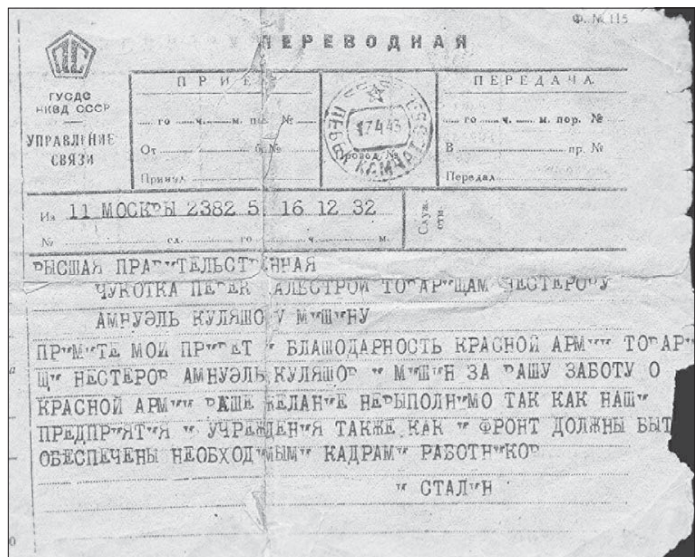 Ф. № 115
ПЕРЕВОДНАЯ
ГУСДС
НКВД СССР
УПРАВЛЕНИЕ
СВЯЗИ
ПРИЕ
го ч. м. пор. №
От б. №
Принял
17 4 43
КАМЧАТ
Провод. №
ПЕРЕДАЧА
го ч. м. пор. №
В пр. №
Передал
Из 11 МОСКРЫ 2382 5 16 12 32
№ сл. го ч. м.
Служ.
ВЫСШАЯ ПРАВИТЕЛЬСТВЕННАЯ
ЧУКОТКА ПЕВЕК ДАЛЕСТРОЙ ТОВАРИЩАМ НЕСТЕРОВУ
АМНУЭЛЬ КУЛЯШОВУ МИШИНУ
ПРИМИТЕ МОЙ ПРИВЕТ И БЛАШОДАРНОСТЬ КРАСНОЙ АРМИИ ТОВАРИ
ЩИ НЕСТЕРОВ АМНУЭЛЬ КУЛЯШОВ И МИШИН ЗА ВАШУ ЗАБОТУ О
КРАСНОЙ АРМИИ ВАШЕ ЖЕЛАНИЕ НЕВЫПОЛНИМО ТАК КАК НАШИ
ПРЕДПРИЯТИЯ И УЧРЕЖДЕНИЯ ТАКЖЕ КАК И ФРОНТ ДОЛЖНЫ БЫТ
ОБЕСПЕЧЕНЫ НЕОБХОДИМЫМИ КАДРАМИ РАБОТНИКОВ
И СТАЛИН